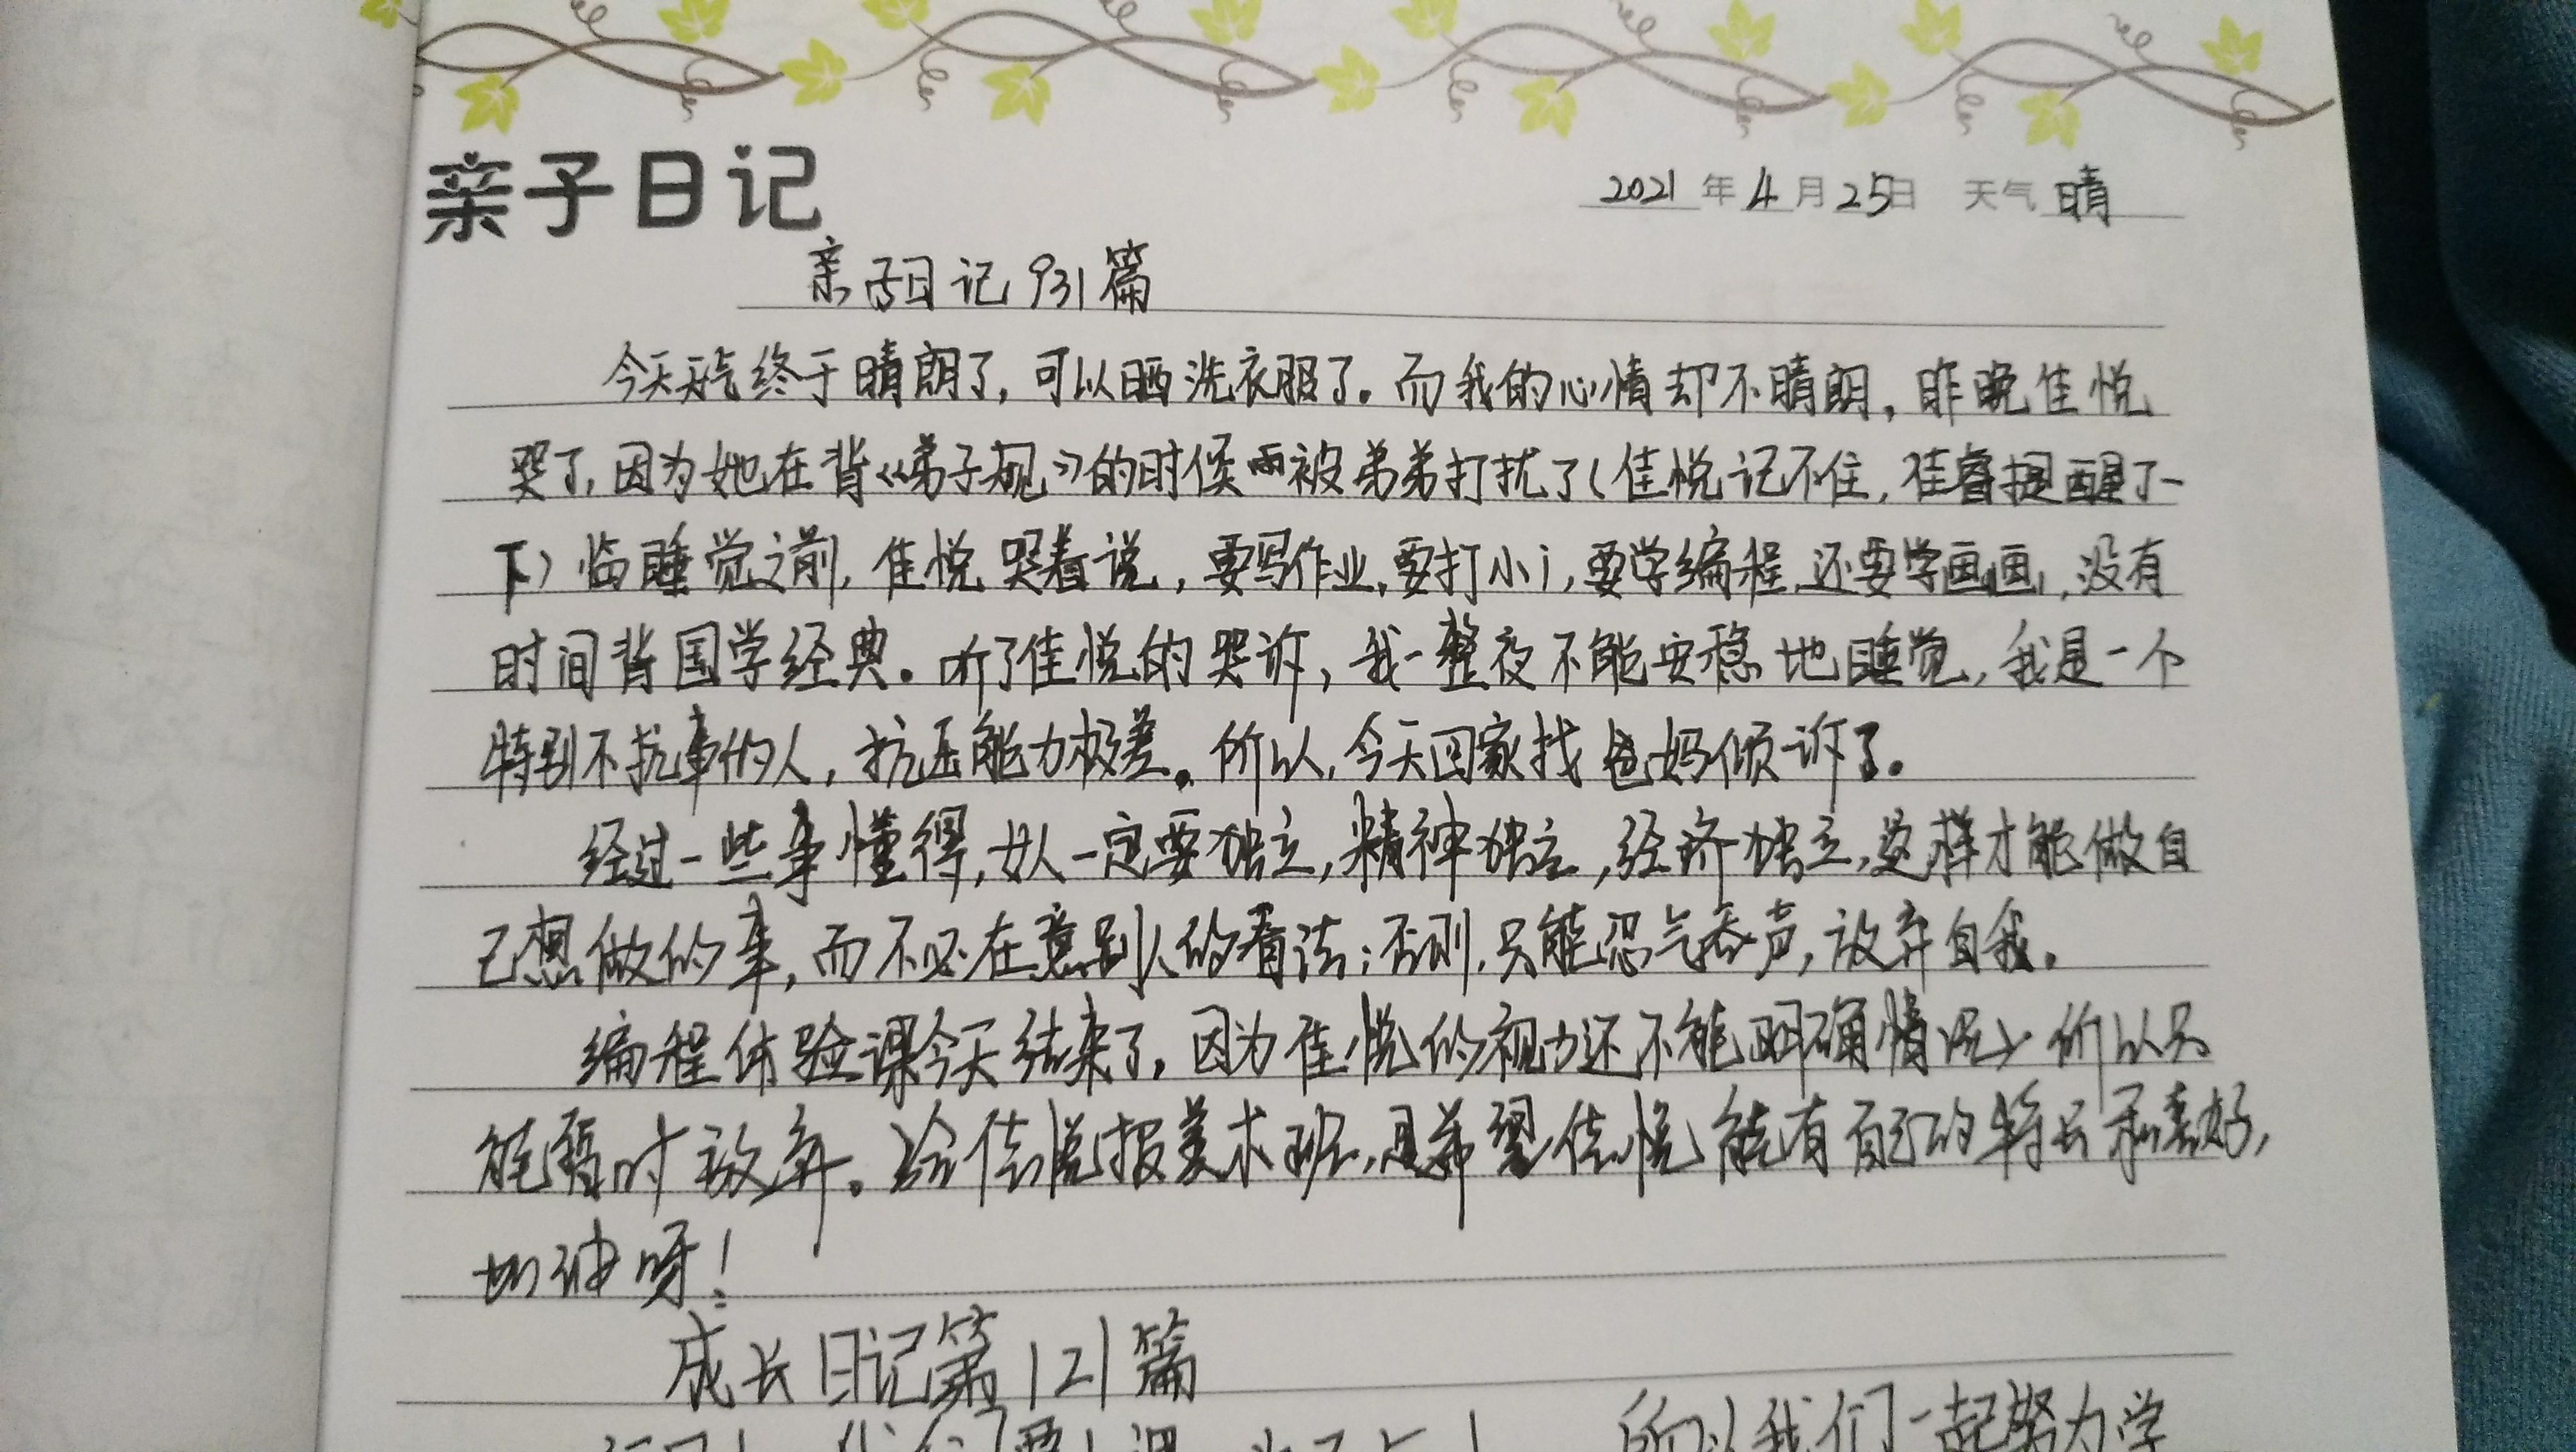 亲子日记
2021年4月25日 天气 晴
亲子日记931篇
今天天气终于晴朗了,可以晒洗衣服了。而我的心情却不晴朗,昨晚佳悦
哭了,因为她在背《弟子规》的时候 被弟弟打扰了(佳悦记不住,佳睿提醒了一
下)临睡觉之前,佳悦哭着说,要写作业,要打小i,要学编程,还要学画画,没有
时间背国学经典。听了佳悦的哭诉,我一整夜不能安稳地睡觉,我是一个
特别不抗事的人,抗压能力极差。所以,今天回家找爸妈倾诉了。
经过一些事懂得,女人一定要独立,精神独立,经济独立,这样才能做自
己想做的事,而不必在意别人的看法;否则,只能忍气吞声,放弃自我。
编程体验课今天结束了,因为佳悦的视力还不能明确情况,所以只
能暂时放弃。给佳悦报美术班,是希望佳悦能有自己的特长和喜好,
加油呀!
成长日记第121篇
所以我们一起努力学